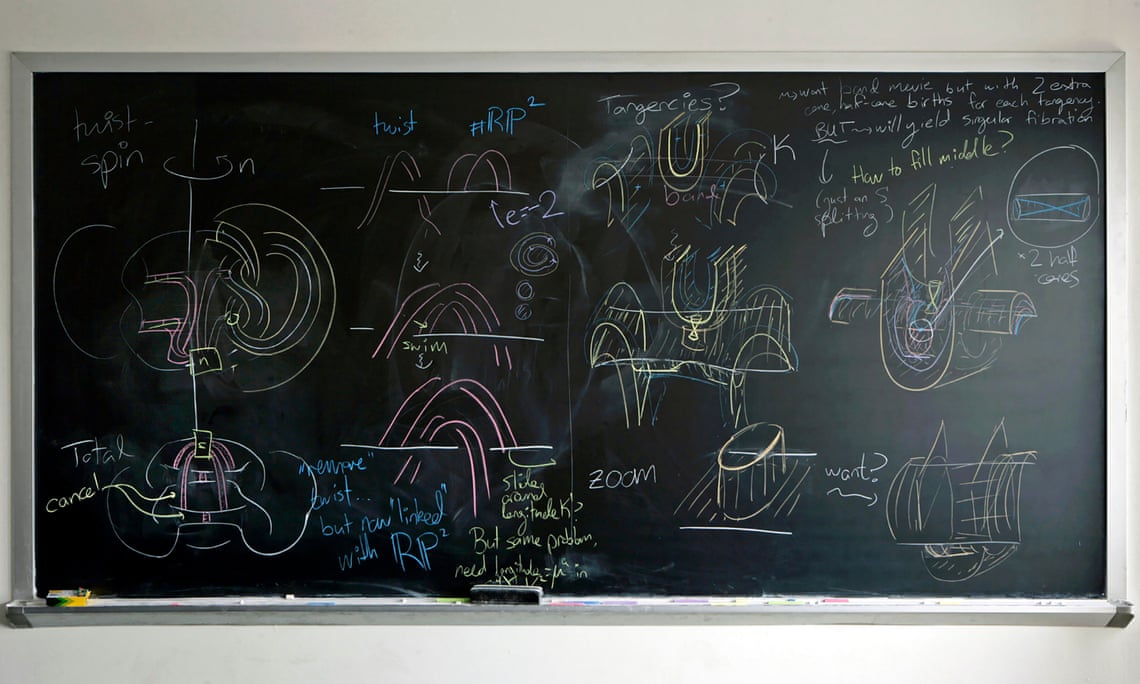 twist-
spin
n
n
Total
cancel
twist
#RP²
e=-2
swim
"remove"
twist...
but now "linked"
with RP²
slide
around
longitude K?
But same problem,
need longitude in
Tangencies?
K
band
zoom
want?
want band movie but with 2 extra
cone, half-cone births for each tangency.
BUT → will yield singular fibration
(just an S
splitting)
How to fill middle?
× 2 half
cones